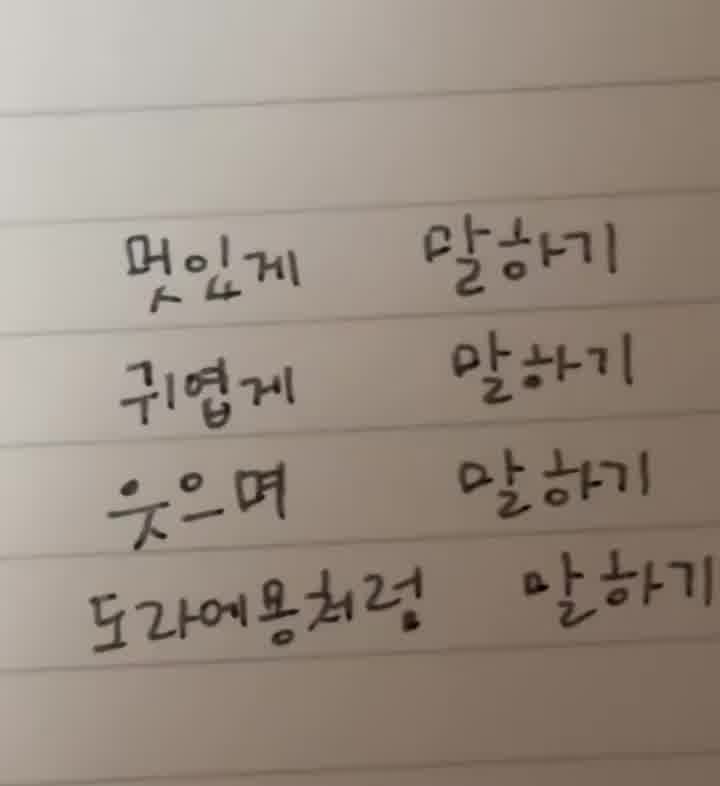 멋있게 말하기
귀엽게 말하기
웃으며 말하기
도라에몽처럼 말하기